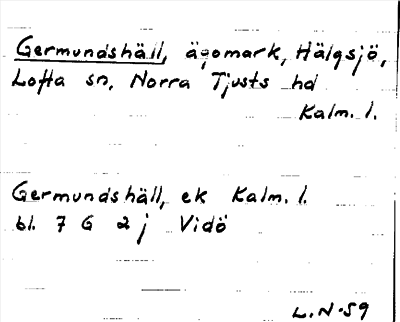 Germundshäll, ägomark, Hälgsjö,
Lofta sn, Norra Tjusts hd
Kalm. l.
Germundshäll, ek Kalm. l.
bl. 7 G 2 j Vidö
L.N-59